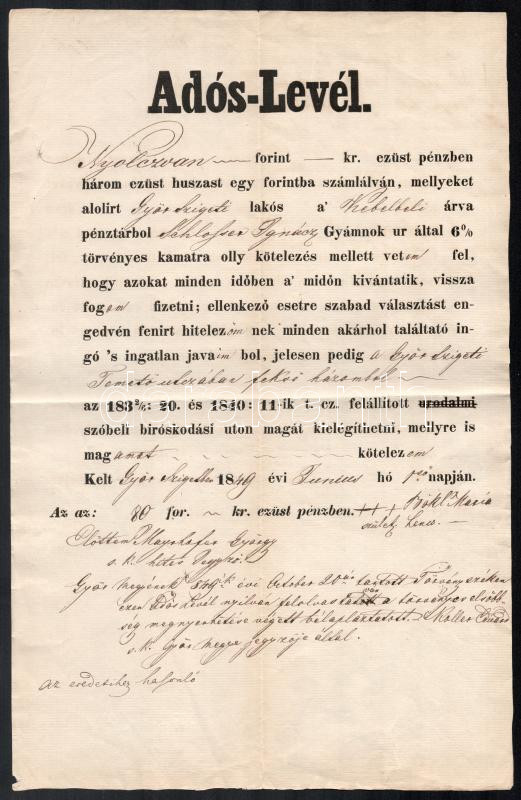 Adós-Levél.
Nyolczvan forint — kr. ezüst pénzben
három ezüst huszast egy forintba számlálván, mellyeket
alolirt Győr Szigeti lakós a' Kebelbeli árva
pénztárbol Schlosser Ignácz Gyámnok ur által 6%
törvényes kamatra olly kötelezés mellett vetem fel,
hogy azokat minden időben a' midőn kivántatik, vissza
fogom fizetni; ellenkező esetre szabad választást en-
gedvén fenirt hitelezőmnek minden akárhol találtató in-
gó 's ingatlan javaimbol, jelesen pedig a Győr Szigeti
Temető utczában fekvő házombol
az 183 2/6: 20. és 1840: 11-ik t. cz. felállított urodalmi
szóbeli biróskodási uton magát kielégíthetni, mellyre is
magamat kötelezem
Kelt Győr Szigetben 1849 évi Junius hó 1ső napján.
Az az: 80 for. kr. ezüst pénzben. +++ Bökl Maria
születz.
Előttem Mayrhofer György
s. k. hites jegyző
Győr megyének 849k évi October 20án tartott Törvényszékén
ezen Adós Levél nyilván felolvastatott a törvényes elsőbb
ség megnyerhetése végett béiktattatott. Koller Eduard
s. k. Győr megye jegyzője által.
az eredetihez hasonló